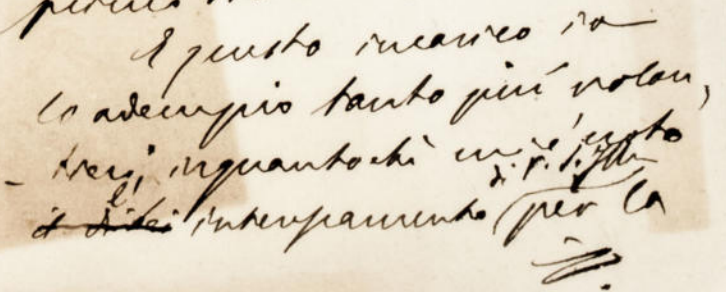 E questo incarico io
lo adempio tanto più volen-
tieri, inquantochè m'è noto
l' interessamento di V. S. Ill. per la